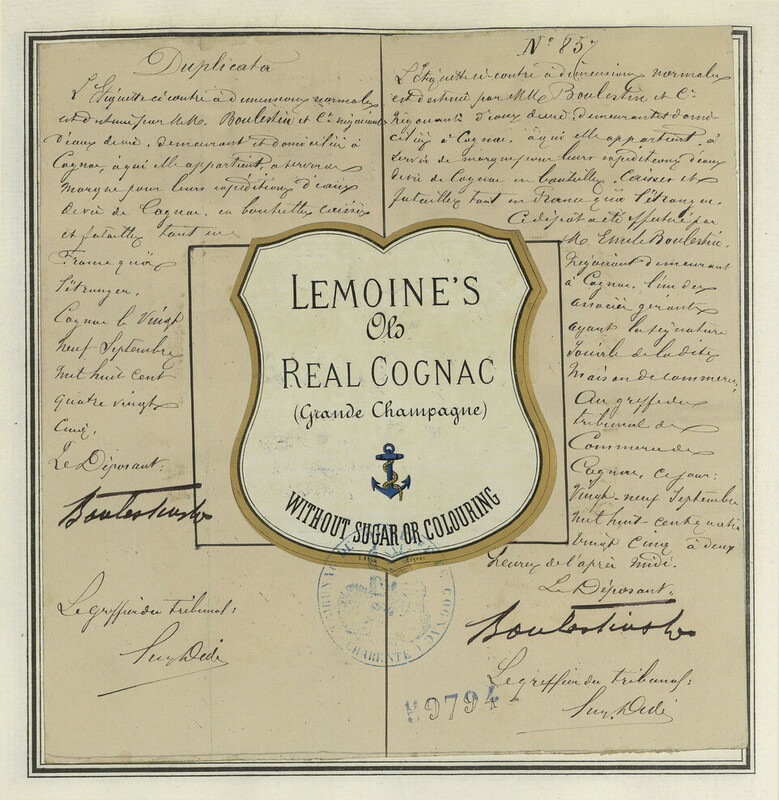 Duplicata
L'Etiquette ci-contre à dimensions normales
est destinée par M.M. Boulestin et Cie négociants
d'eaux de vie, demeurant et domiciliés à
Cognac, à qui elle appartient, à servir de
marque pour leurs expéditions d'eaux
de vie de Cognac en bouteilles caisses
et futailles tant en
France qu'à
l'étranger.
Cognac le Vingt
neuf Septembre
mil huit cent
quatre vingt
cinq.
Le Déposant:
Le greffier du tribunal:
No 857
L'Etiquette ci-contre à dimensions normales
est destinée par MM. Boulestin et Cie
Négociants d'eaux de vie, demeurant et domi-
ciliés à Cognac, à qui elle appartient, à
servir de marque pour leurs expéditions d'eaux
de vie de Cognac en bouteilles, Caisses et
futailles tant en France qu'à l'étranger.
Ce dépôt a été effectué par
M. Emile Boulestin,
Négociant demeurant
à Cognac, l'un des
associés gérants
ayant la signature
sociale de la dite
Maison de commerce,
Au greffe du
tribunal de
Commerce de
Cognac, ce jour:
Vingt-neuf Septembre
mil huit cent quatre
vingt cinq à deux
heures de l'après midi.
Le Déposant:
Le greffier du tribunal:
LEMOINE'S
Old
REAL COGNAC
(Grande Champagne)
WITHOUT SUGAR OR COLOURING
COGNAC
CHARENTE